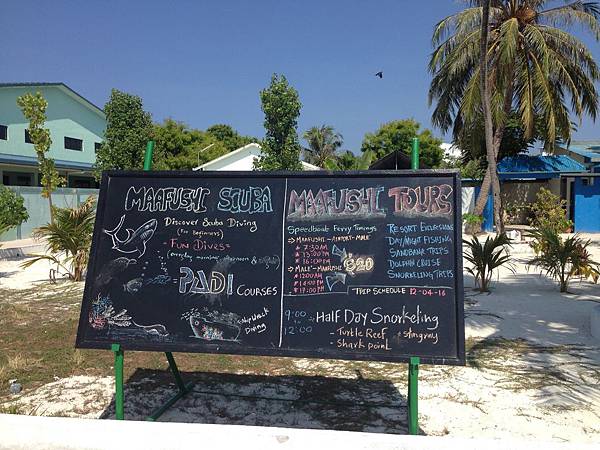 MAAFUSHI SCUBA
Discover Scuba Diving
(For Beginners)
FUN DIVES
(everyday morning, afternoon & night)
PADI
COURSES
SHIPWRECK
DIVING
MAAFUSHI TOURS
Speedboat Ferry Timings
MAAFUSHI - AIRPORT - MALE'
7:30AM
MALE' - MAAFUSHI
$20
RESORT EXCURSIONS
DAY/NIGHT FISHING
SANDBANK TRIPS
DOLPHIN CRUISE
SNORKELING TRIPS
TRIP SCHEDULE 12-04-16
9:00
to
12:00
Half Day Snorkeling
- Turtle Reef - Stingray
- Shark point